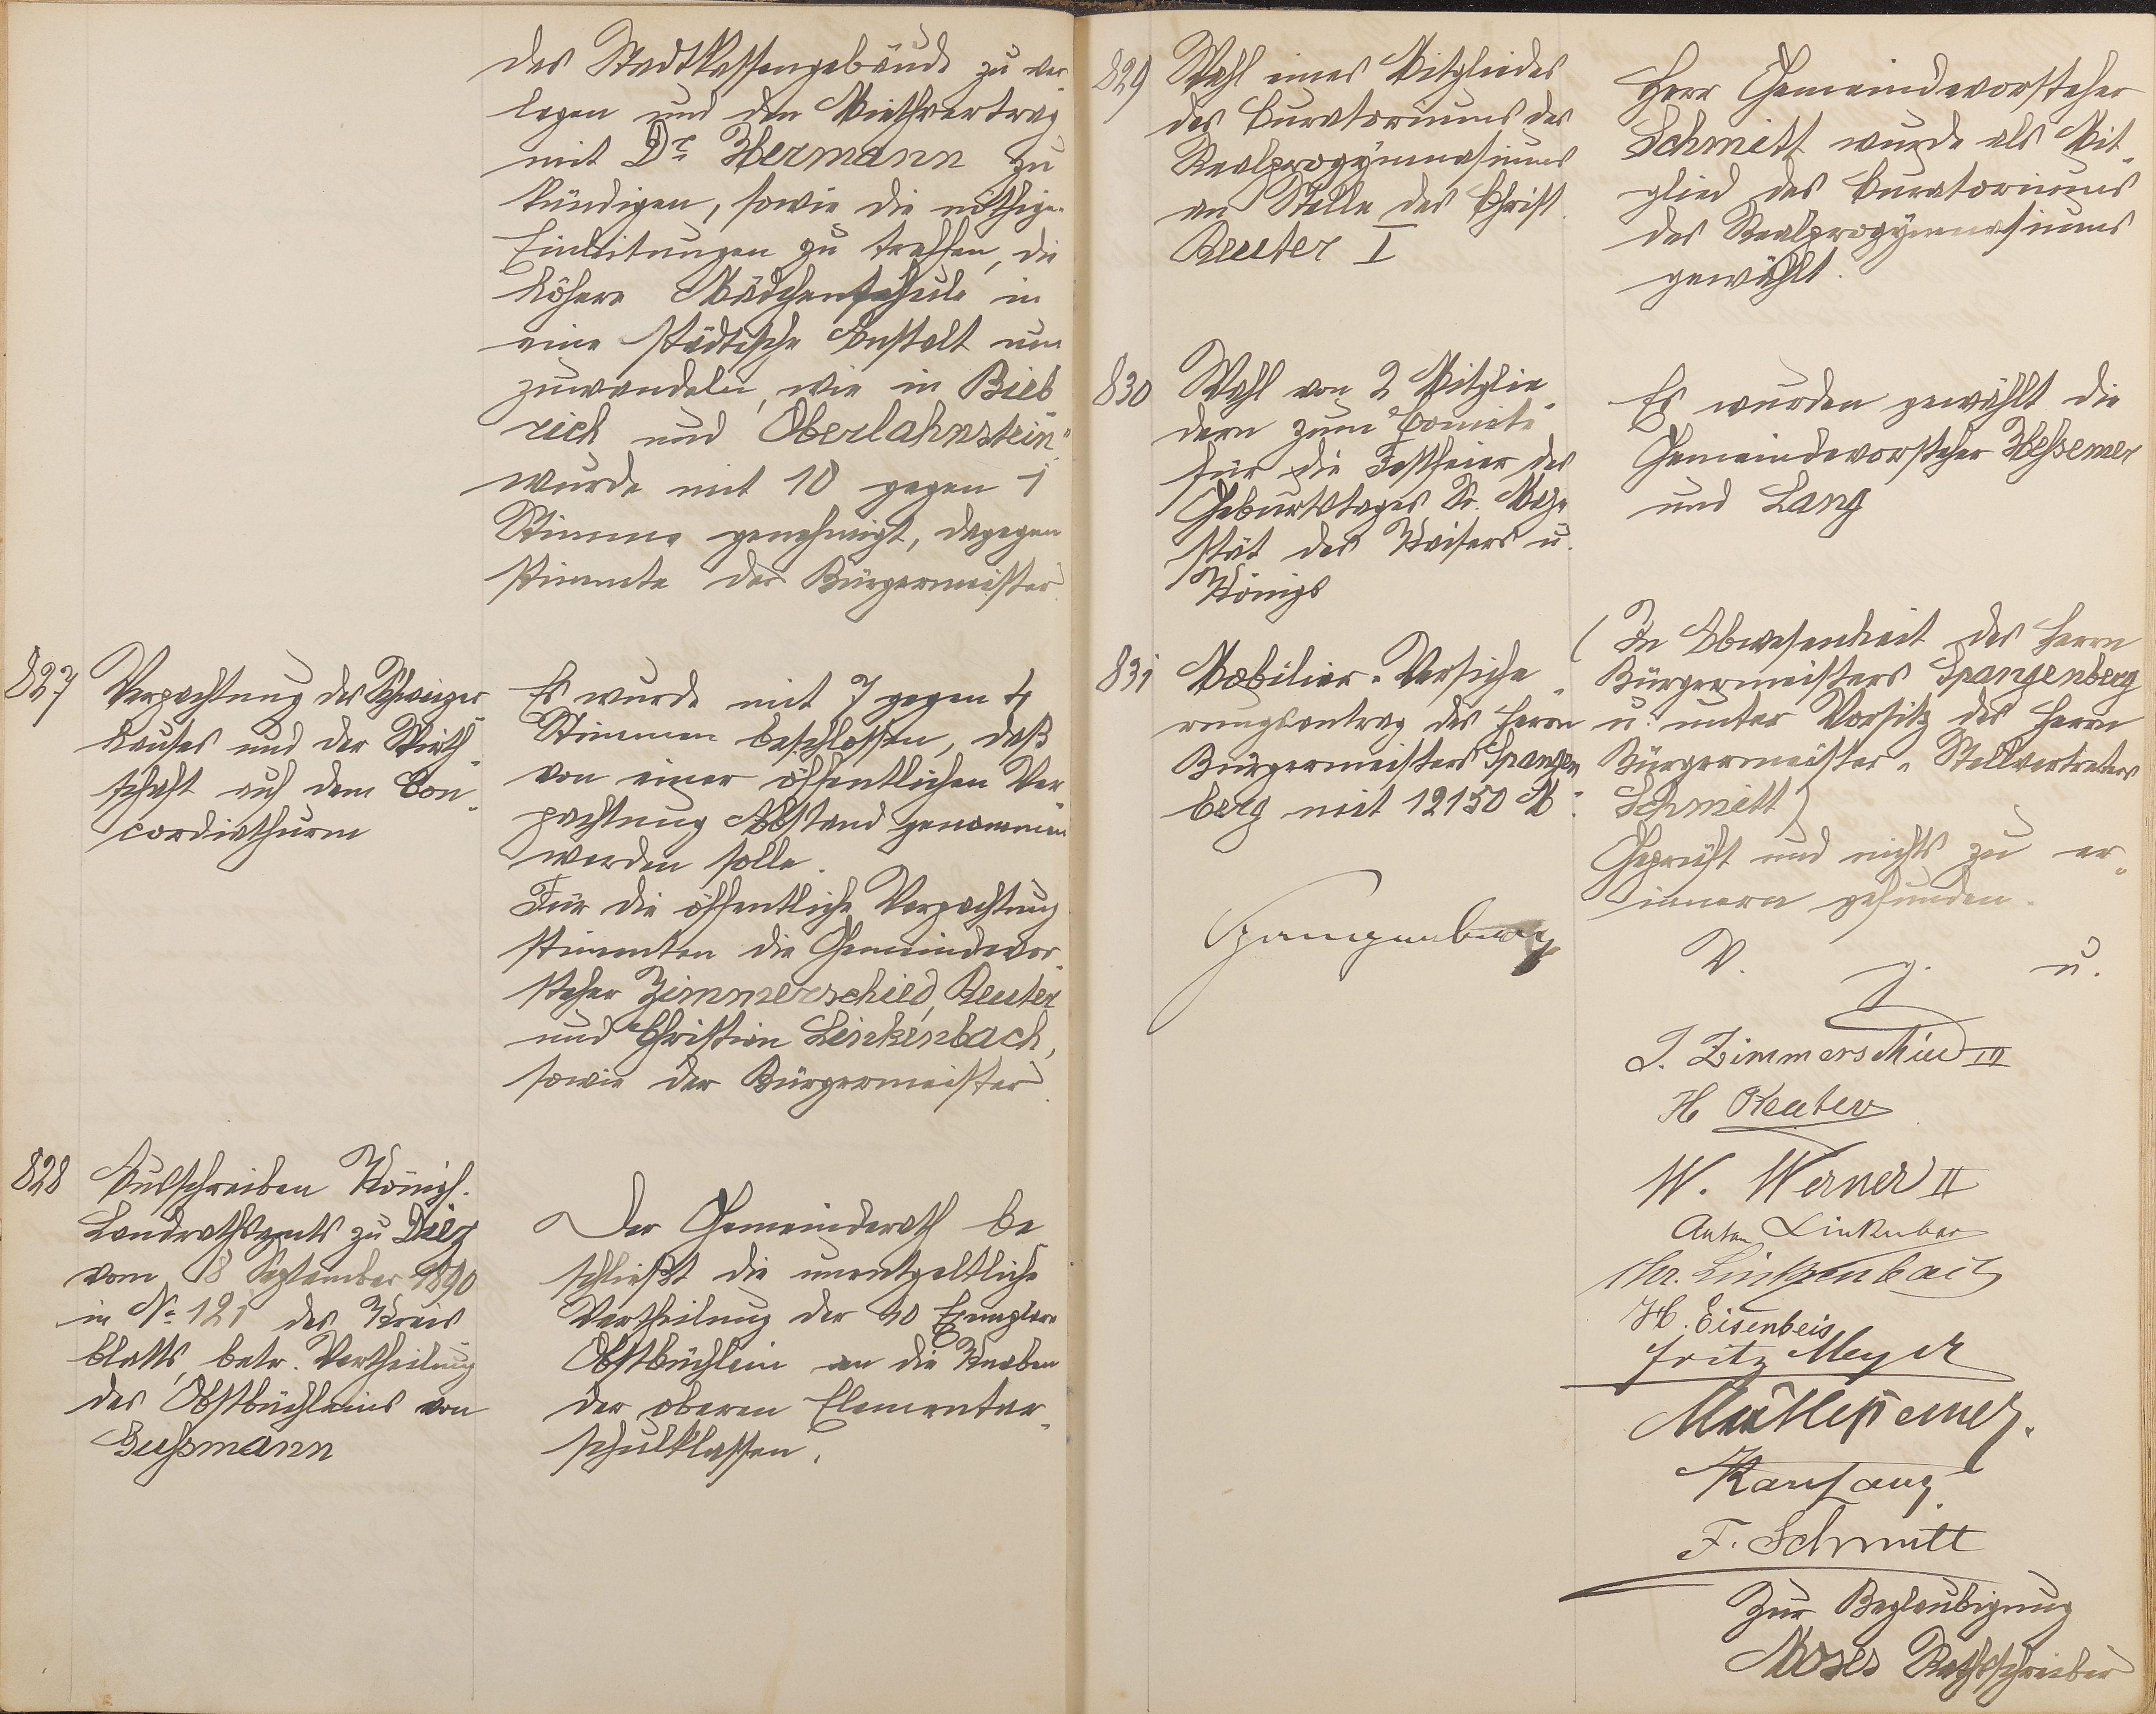 des Stadtkassengebäude zu ver-
legen und den Miethvertrag
mit Dr. Hermann zu
kündigen, sowie die nöthigen
Einleitungen zu treffen, die
höhere Mädchenschule in
eine städtische Anstalt um
zuwandeln, wie in Bieb
rich und Oberlahnstein"
wurde mit 10 gegen 1
Stimme genehmigt, dagegen
stimmte der Bürgermeister.
827
Verpachtung des Schweizer
hauses und der Wirth-
schaft auf dem Con-
cordiathurm
Es wurde mit 7 gegen 4
Stimmen beschlossen, daß
von einer öffentlichen Ver
pachtung Abstand genommen
werden solle.
Für die öffentliche Verpachtung
stimmten die Gemeindevor-
steher Zimmerschied, Reuter
und Christian Linkenbach,
sowie der Bürgermeister.
828
Ausschreiben Königl.
Landrathsamts zu Diez
vom 18 September 1890
in No. 121 des Kreis
blatts, betr. Vertheilung
des Obstbüchleins von
Gußmann
Der Gemeinderath be
schließt die unentgeltliche
Vertheilung der 40 Exemplare
Obstbüchlein an die Knaben
der oberen Elementar-
schulklassen.
829
Wahl eines Mitgliedes
des Curatoriums des
Realprogymnasiums
an Stelle des Christ.
Reuter I
Herr Gemeindevorsteher
Schmitt wurde als Mit-
glied des Curatoriums
des Realprogymnasiums
gewählt.
830
Wahl von 2 Mitglie-
dern zum Comité
für die Festfeier des
Geburtstages Sr. Maje
stät des Kaisers u.
Königs
Es wurden gewählt die
Gemeindevorsteher Heßemer
und Lang
831
Mobiliar-Versiche-
rungsantrag des Herrn
Bürgermeisters Spangen
berg mit 12150 M.
(In Abwesenheit des Herrn
Bürgermeisters Spangenberg
u. unter Vorsitz des Herrn
Bürgermeister-Stellvertreters
Schmitt)
Geprüft und nichts zu er-
innern gefunden.
Spangenberg
V. g. u.
J. Zimmerschied III
H Reuter
W. Werner II
Anton Linkenbach
Chr. Linkenbach
H. Eisenbeis
Fritz Meyer
Heßemer.
Karl Lang
F. Schmitt
Zur Beglaubigung
Moses Rathschreiber